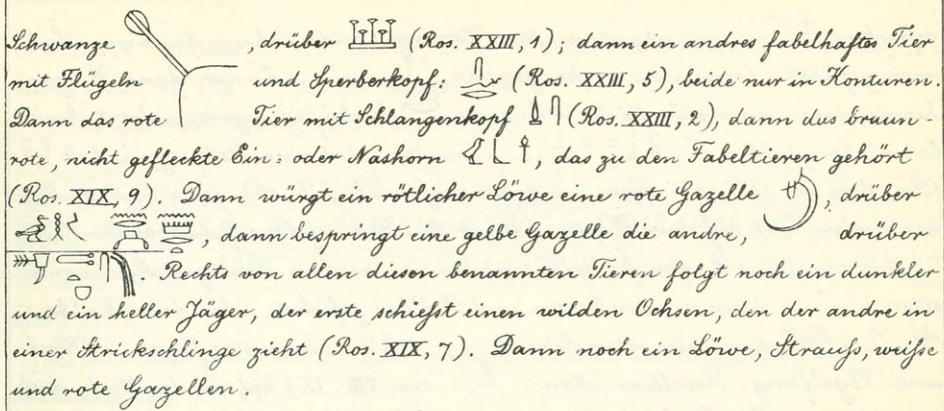 Schwanze , drüber (Ros. XXIII, 1); dann ein andres fabelhaftes Tier
mit Flügeln und Sperberkopf: (Ros. XXIII, 5), beide nur in Konturen.
Dann das rote Tier mit Schlangenkopf (Ros. XXIII, 2), dann das braun-
rote, nicht gefleckte Ein- oder Nashorn , das zu den Fabeltieren gehört
(Ros. XIX, 9). Dann würgt ein rötlicher Löwe eine rote Gazelle , drüber
, dann bespringt eine gelbe Gazelle die andre, drüber
. Rechts von allen diesen benannten Tieren folgt noch ein dunkler
und ein heller Jäger, der erste schiefst einen wilden Ochsen, den der andre in
einer Strickschlinge zieht (Ros. XIX, 7). Dann noch ein Löwe, Straufs, weifse
und rote Gazellen.